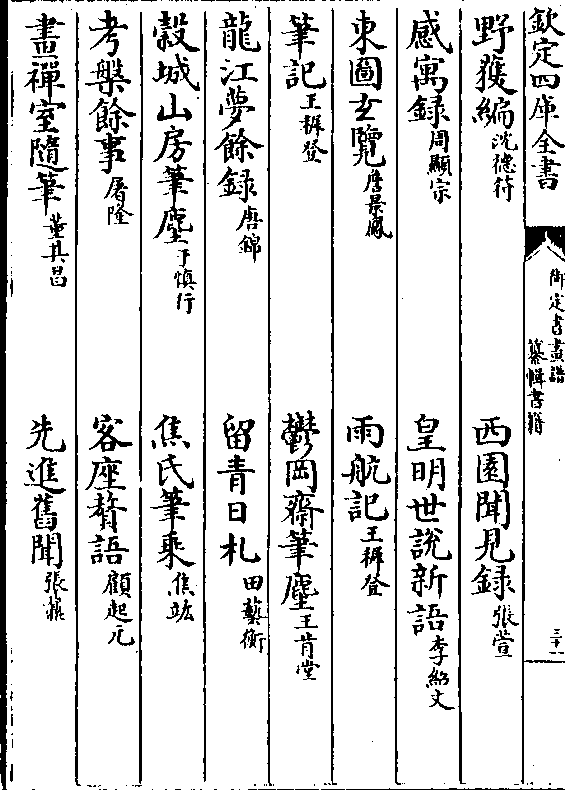 欽定四庫全書
御定書畫譜
纂輯書籍
三十一
野獲編沈德符
西園聞見錄張萱
感寓録周顯宗
皇明世說新語李紹文
東圖玄覽詹景鳳
雨航記王穉登
筆記王穉登
鬱岡齋筆麈王肯堂
龍江夢餘録唐錦
留青日札田藝衡
榖城山房筆麈于慎行
焦氏筆乘焦竑
考槃餘事屠隆
客座贅語顧起元
畫禪室隨筆董其昌
先進舊聞張鼐